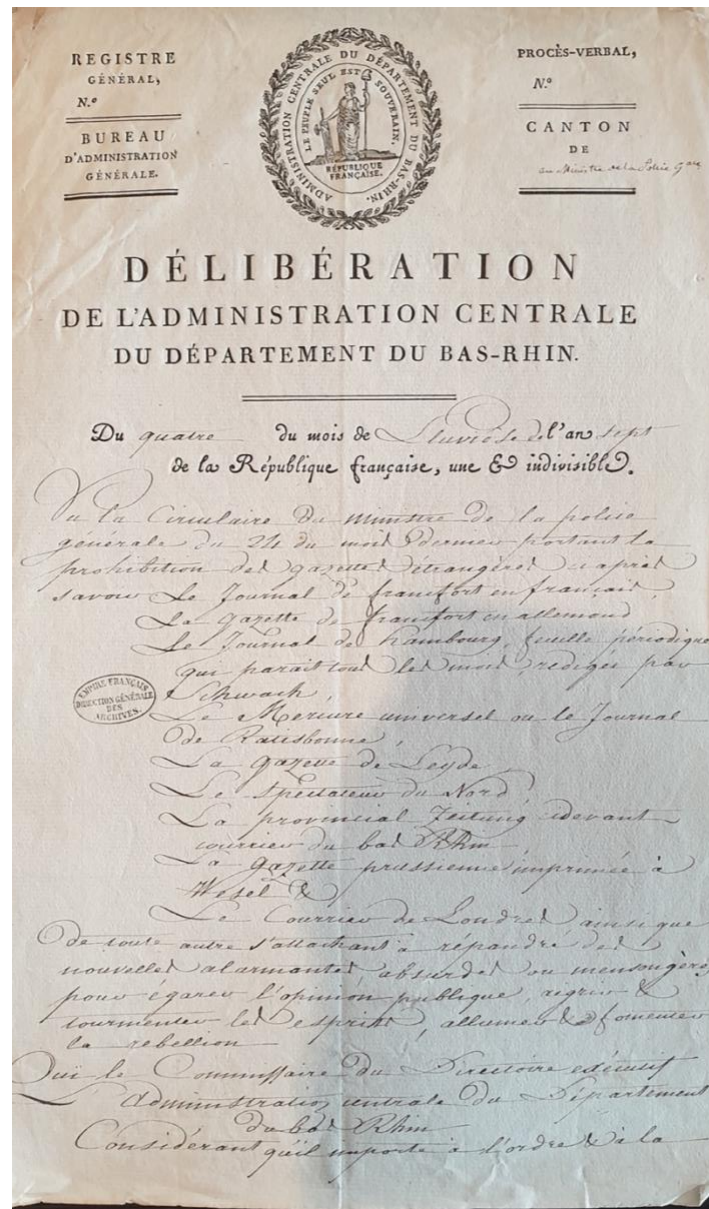 REGISTRE
GÉNÉRAL,
N.°
BUREAU
D'ADMINISTRATION
GÉNÉRALE.
ADMINISTRATION CENTRALE DU DÉPARTEMENT DU BAS-RHIN.
LE PEUPLE SEUL EST SOUVERAIN.
RÉPUBLIQUE
FRANÇAISE.
PROCÈS-VERBAL,
N.°
CANTON
DE
au Ministre de la Police Gale
DÉLIBÉRATION
DE L'ADMINISTRATION CENTRALE
DU DÉPARTEMENT DU BAS-RHIN.
Du quatre du mois de Pluviôse de l'an sept
de la République française, une & indivisible.
Vu la Circulaire du Ministre de la police
générale du 24 du mois dernier portant la
prohibition des gazettes étrangères ci après
savoir Le Journal de francfort en français,
La gazette de francfort en allemand
Le Journal de hambourg, feuille périodique
qui parait tous les mois, redigée par
Schwach,
Le Mercure universel ou le Journal
de Ratisbonne,
La gazette de Leyde,
Le Spectateur du Nord,
La provincial Zeitung cidevant
courrier du bas Rhin,
La Gazette prussienne imprimée à
Wesel &
Le Courrier de Londres ainsi que
de toute autre s'attachant à répandre des
nouvelles alarmantes, absurdes ou mensongères
pour égarer l'opinion publique, aigrir &
tourmenter les esprits, allumer & fomenter
la rebellion
Ouï le Commissaire du Directoire exécutif
L'Administration centrale du Département
du bas Rhin
Considérant qu'il importe à l'ordre & à la
EMPIRE FRANÇAIS
DIRECTION GÉNÉRALE
DES
ARCHIVES.